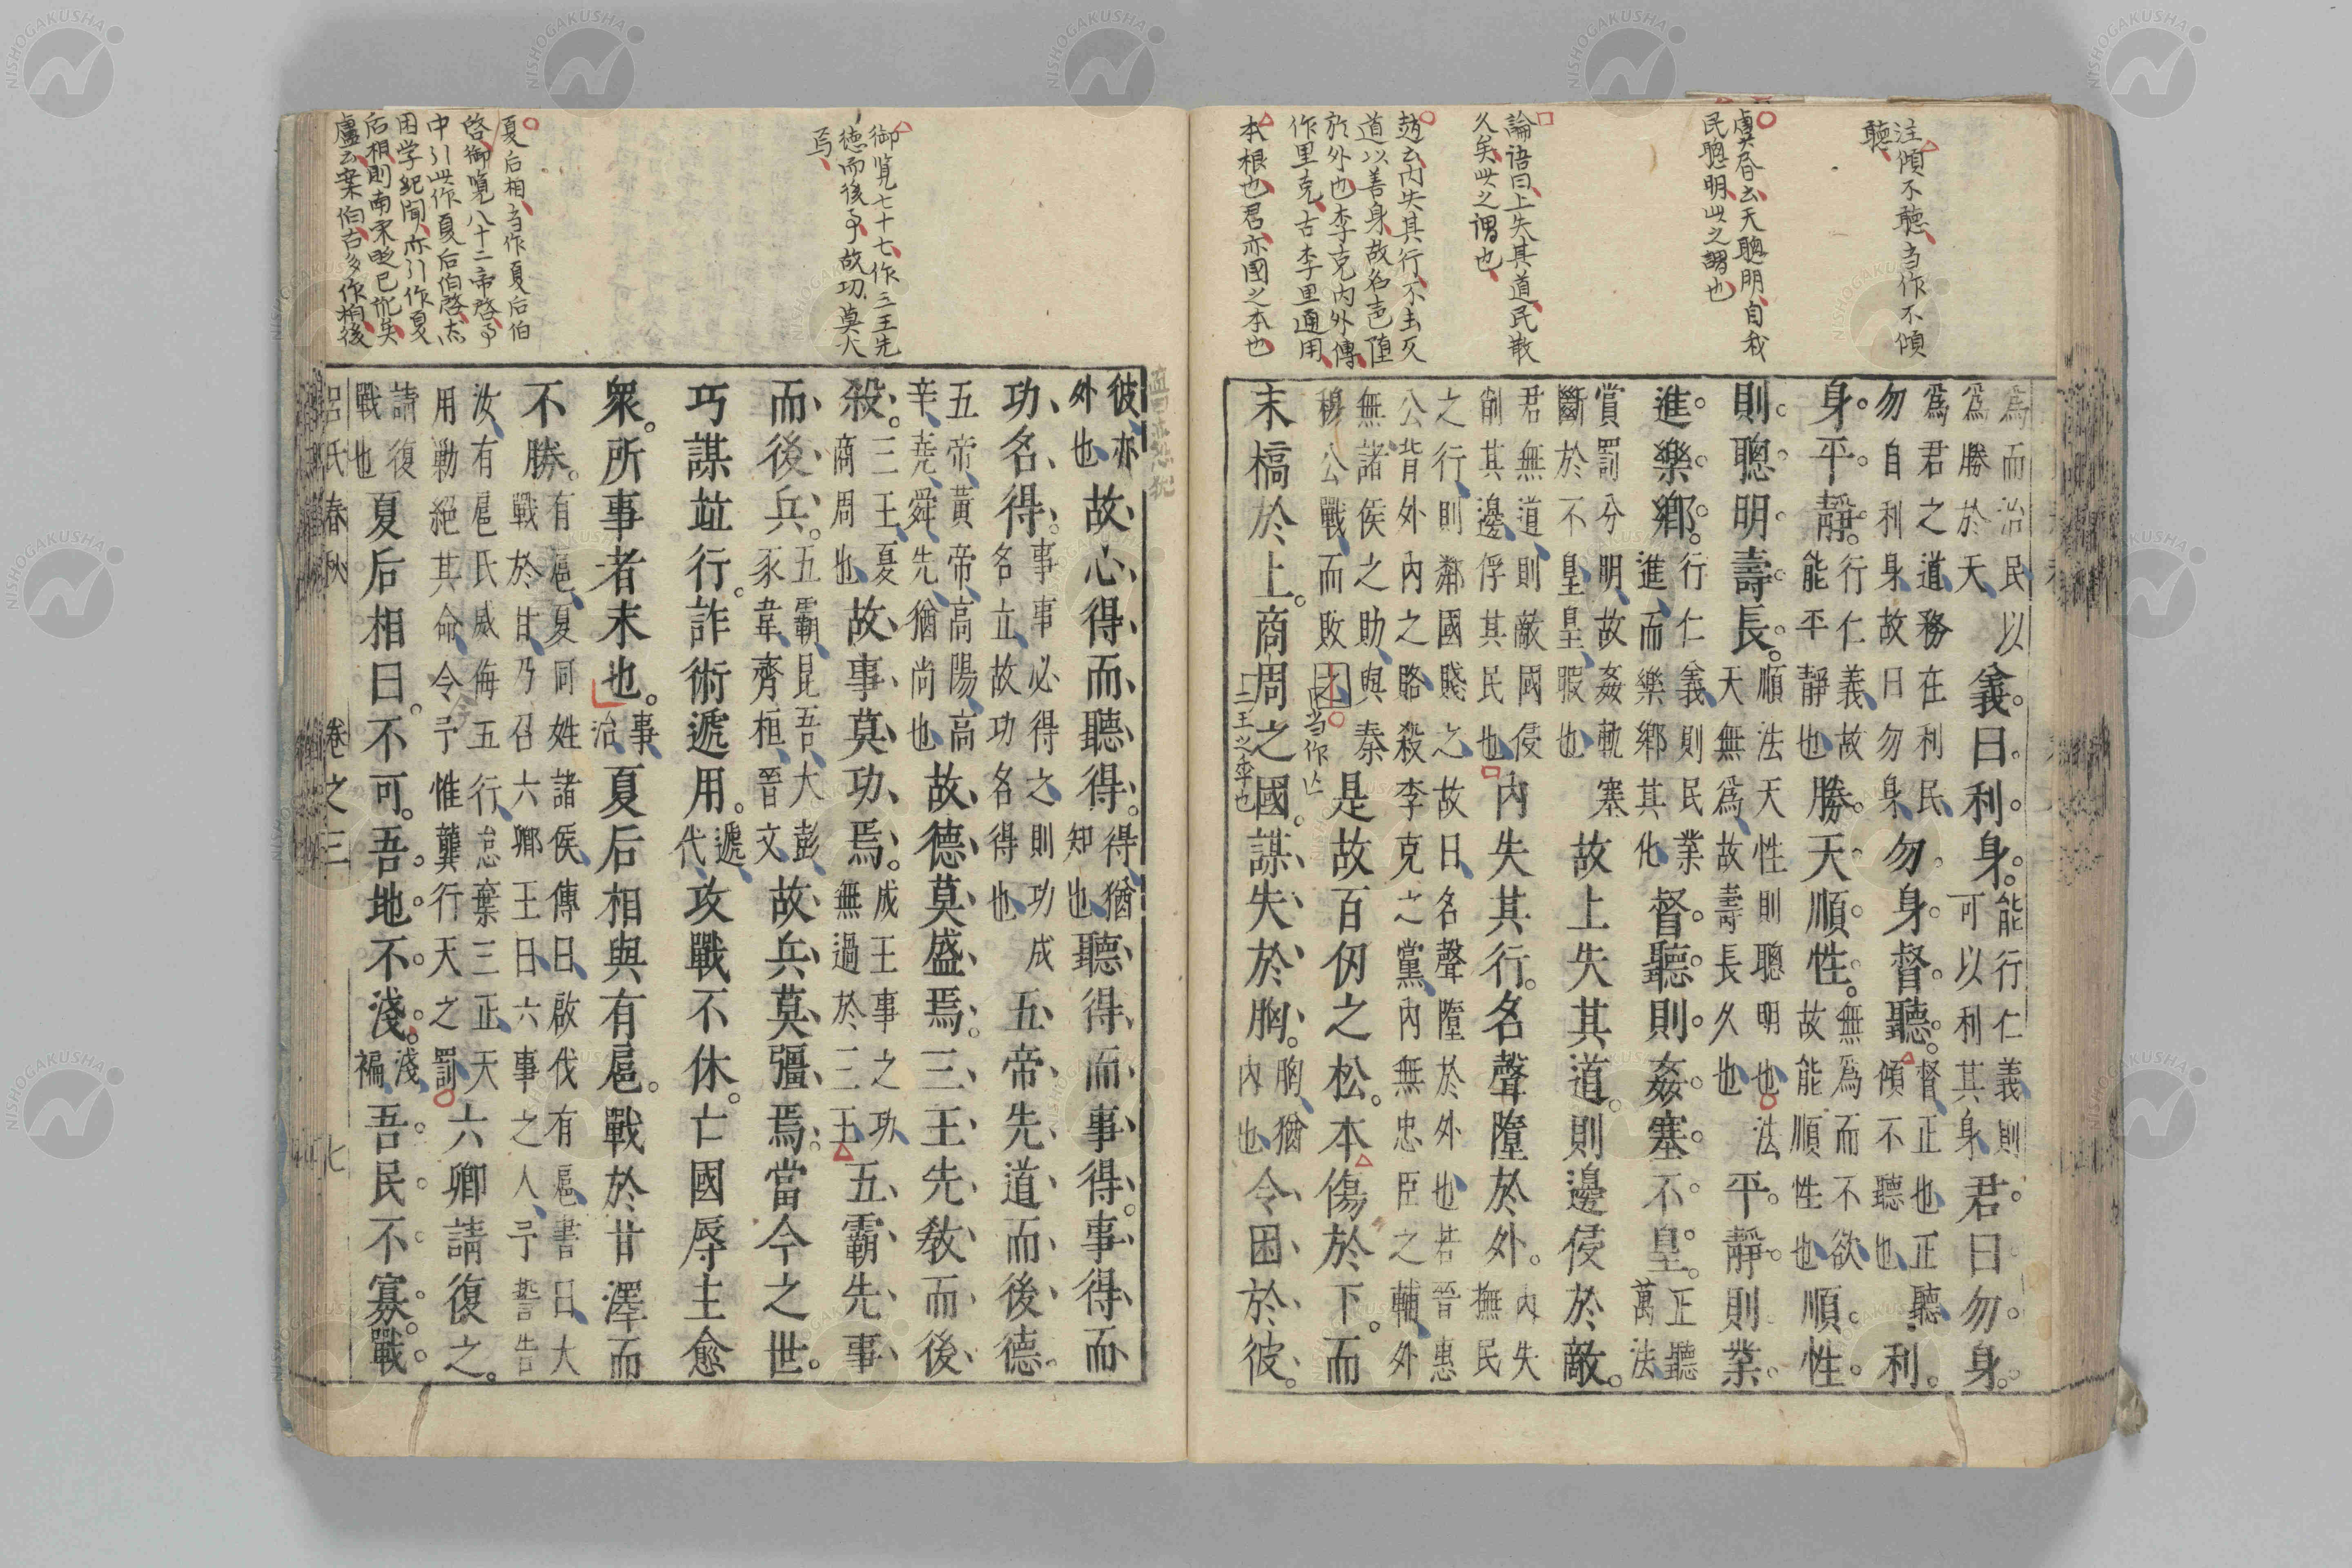 注傾不聽当作不傾
聽
虞昏云天聰明自我
民聰明此之謂也
論语曰上失其道民散
久矣此之谓也
道以善身故名声堕
於外也李克内外傳
作里克古李里通用
本根也君亦國之本也
為而治民以義曰利身能行仁義則君曰勿身
為勝於天可以利其身
爲君之道務在利民勿身督聽督正也正聽利
勿自利身故曰勿身傾不聽也
身平靜行仁義故勝天順性無爲而不欲順性
能平靜也故能順性也
則聰明壽長順法天性則聰明也法平靜則業
天無爲故壽長久也
進樂鄕行仁義則民業督聽則姦塞不皇正聽
進而樂鄕其化萬法
賞罰分明故姦軌塞故上失其道則邊侵於敵
斷於不皇皇暇也
君無道則敵國侵内失其行名聲墮於外内失
削其邊俘其民也撫民
之行則鄰國賤之故曰名聲墮於外也若晉惠
公背外内之賂殺李克之黨内無忠臣之輔外
無諸侯之助與秦是故百仞之松本傷於下而
穆公戰而敗之
当作止
末槁於上商周之國謀失於胸胸猶令困於彼
内也
二王之季也
御覧七十七作三王先
德而後事故功莫大
焉
夏后相当作夏后伯
啓御覧八十二帝啓事
中引此作夏后伯啓
困学紀聞亦引作夏
后相則南宋時已訛矣
盧云案伯古多作柏後
彼亦故心得而聽得得猶聽得而事得事得而
外也知也
功名得事事必得之則功成五帝先道而後德
名立故功名得也
五帝黃帝高陽高故德莫盛焉三王先敎而後
辛堯舜先猶尚也
殺三王夏故事莫功焉成王事之功五霸先事
商周也無過於三王
而後兵五霸昆吾大彭故兵莫彊焉當今之世
豕韋齊桓晉文
巧謀竝行詐術遞用遞攻戰不休亡國辱主愈
代
衆所事者末也事夏后相與有扈戰於甘澤而
治
不勝有扈夏同姓諸侯傳曰啟伐有扈書曰大
戰於甘乃召六卿王曰六事之人予誓告
汝有扈氏威侮五行怠棄三正天六卿請復之
用勦絕其命今予惟龔行天之罰
請復夏后相曰不可吾地不淺淺吾民不寡戰
戰也褊
呂氏春秋 卷之三 七